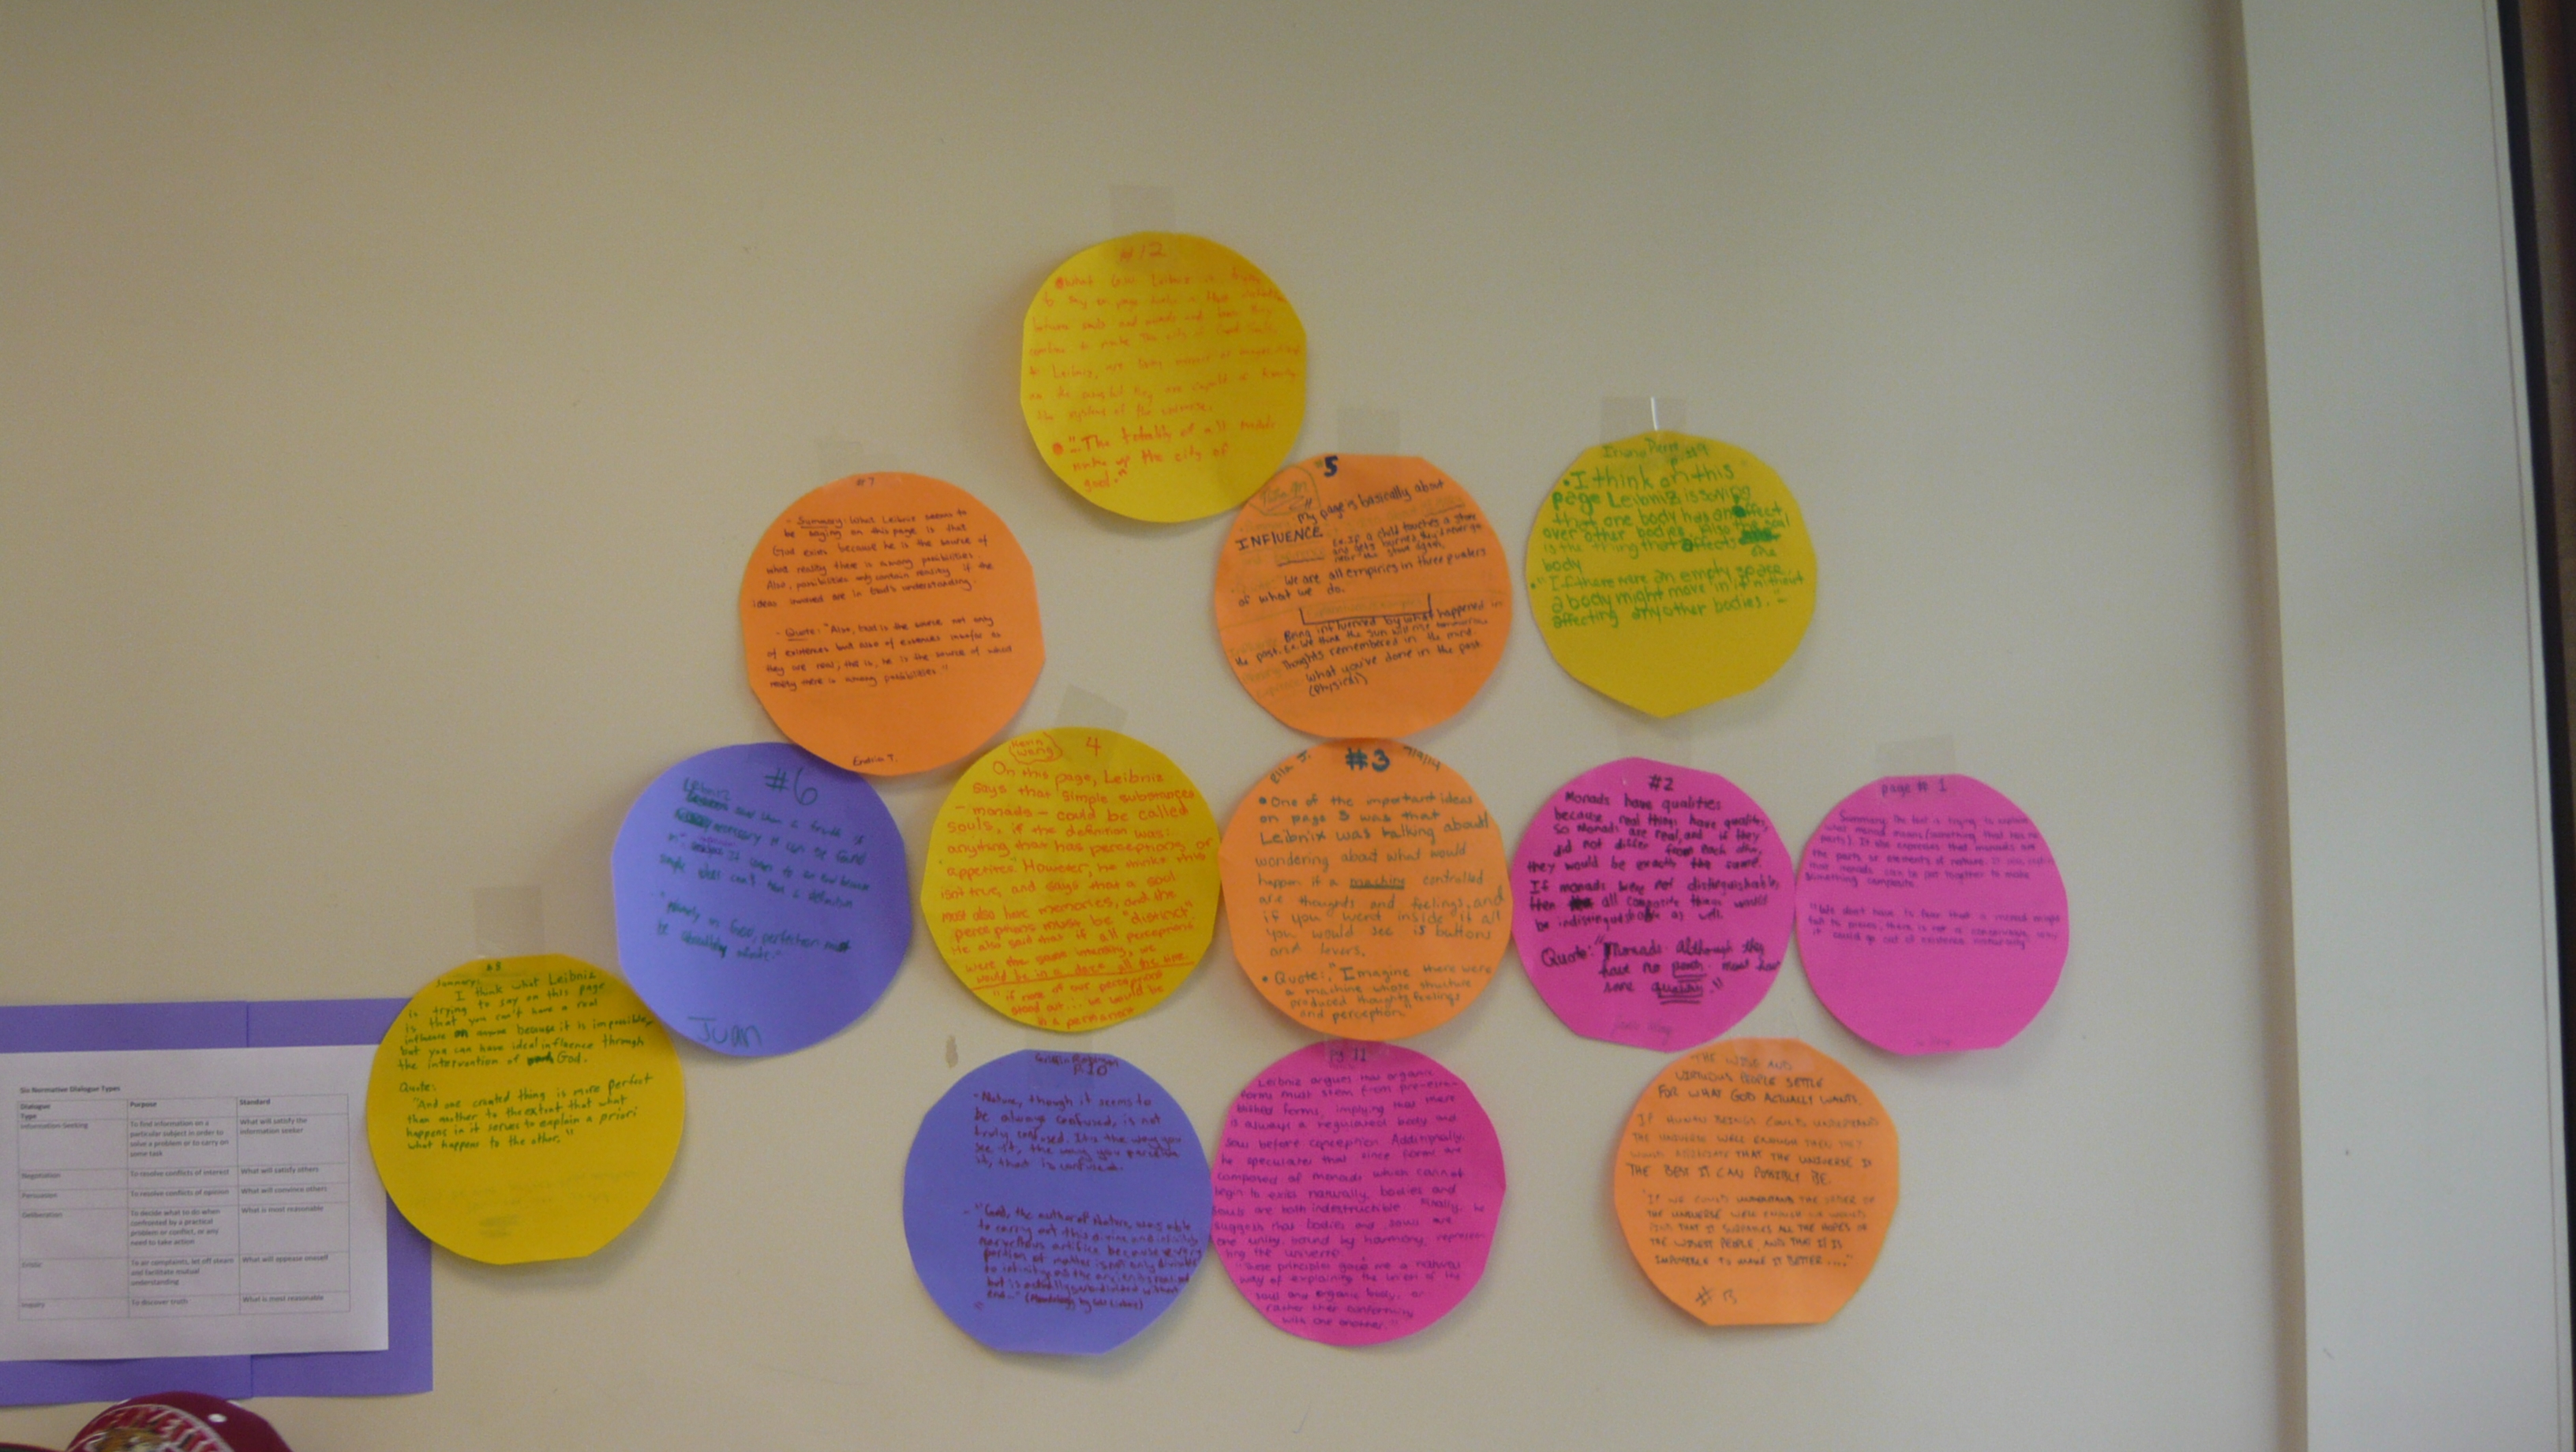 #12
Leibniz is trying
between souls and
the system of the universe.
"...The totality of all
make up the city of
god."
#7
- Summary: What Leibniz seems to
be saying on this page is that
God exists because he is the source of
what reality there is among possibilities.
Also, possibilities only contain reality if the
ideas involved are in God's understanding.
- Quote: "Also, God is the source not only
of existences but also of essences insofar as
they are real; that is, he is the source of what
reality there is among possibilities."
Endrin T.
#5
My page is basically about
INFLUENCE.
Ex. If a child touches a stove
and gets burned they never go
near the stove again.
We are all empirics in three quarters
of what we do.
Being influenced by what happened in
the past. Ex. We think the sun will rise tomorrow
Thoughts remembered in the mind.
What you've done in the past.
(Physical)
#9
• I think on this
page Leibniz is saying
that one body has an affect
over other bodies. Also the soul
is the thing that affects
the
body
• "If there were an empty space,
a body might move in it without
affecting any other bodies."
#6
Leibniz
Juan
Kevin
Wang
4
On this page, Leibniz
says that simple substances
- monads - could be called
souls, if the definition was:
"anything that has perceptions or
appetites." However, he thinks this
isn't true, and says that a soul
must also have memories, and the
perceptions must be "distinct".
He also said that if all perceptions
were the same intensity, we
would be in a daze all the time.
"if none of our perceptions
stood out... we would be
in a permanent
Ella J.
#3
7/9/14
• One of the important ideas
on page 3 was that
Leibnix was talking about
wondering about what would
happen if a machine controlled
are thoughts and feelings, and
if you went inside it all
you would see is buttons
and levers.
• Quote: "Imagine there were
a machine whose structure
produced thoughts, feelings
and perception."
#2
Monads have qualities
because real things have qualities,
so Monads are real, and if they
did not differ from each other,
they would be exactly the same.
If monads were not distinguishable,
then all composite things would
be indistinguishable as well.
Quote: "Monads, although they
have no parts, must have
some qualities."
page # 1
Summary: The text is trying to explain
what monad means (something that has no
parts). It also expresses that monads are
the parts or elements of nature. It also
that monads can be put together to make
something composite.
"We don't have to fear that a monad might
fall to pieces; there is no conceivable way
it could go out of existence naturally"
#8
Summary:
I think what Leibniz
is trying to say on this page
is that you can't have a real
influence on anyone because it is impossible,
but you can have ideal influence through
the intervention of God.
Quote:
"And one created thing is more perfect
than another to the extent that what
happens in it serves to explain a priori
what happens to the other."
P.10
- Nature, though it seems to
be always confused, is not
truly confused. It's the way you
see it, the way you perceive
it, that is confused.
- "God, the author of Nature, was able
to carry out this divine and infinitely
marvellous artifice because every
portion of matter is not only divisible
to infinity as the ancients realised
but is actually sub-divided without
end..."
pg 11
Leibniz argues that organic
forms must stem from pre-estab-
lished forms, implying that there
is always a regulated body and
soul before conception. Additionally,
he speculates that since forms are
composed of monads which cannot
begin to exist naturally, bodies and
souls are both indestructible. Finally, he
suggests that bodies and souls are
one unity, bound by harmony, represen-
ting the universe.
"These principles gave me a natural
way of explaining the union of the
soul and organic body, or
rather their conformity
with one another."
THE WISE AND
VIRTUOUS PEOPLE SETTLE
FOR WHAT GOD ACTUALLY WANTS.
IF HUMAN BEINGS COULD UNDERSTAND
THE UNIVERSE WELL ENOUGH THEN THEY
WOULD APPRECIATE THAT THE UNIVERSE IS
THE BEST IT CAN POSSIBLY BE.
"IF WE COULD UNDERSTAND THE ORDER OF
THE UNIVERSE WELL ENOUGH WE WOULD
THAT IT SURPASSES ALL THE HOPES OF
THE WISEST PEOPLE, AND THAT IT IS
IMPOSSIBLE TO MAKE IT BETTER...."
# 13
Six Normative Dialogue Types
Dialogue Type Purpose Standard
Information Seeking To find information on a particular subject in order to solve a problem or to carry on some task What will satisfy the information seeker
Negotiation To resolve conflicts of interest What will satisfy others
Persuasion To resolve conflicts of opinion What will convince others
Deliberation To decide what to do when confronted by a practical problem or conflict, or any need to take action What is most reasonable
Eristic To air complaints, let off steam and facilitate mutual understanding What will appease oneself
Inquiry To discover truth What is most reasonable